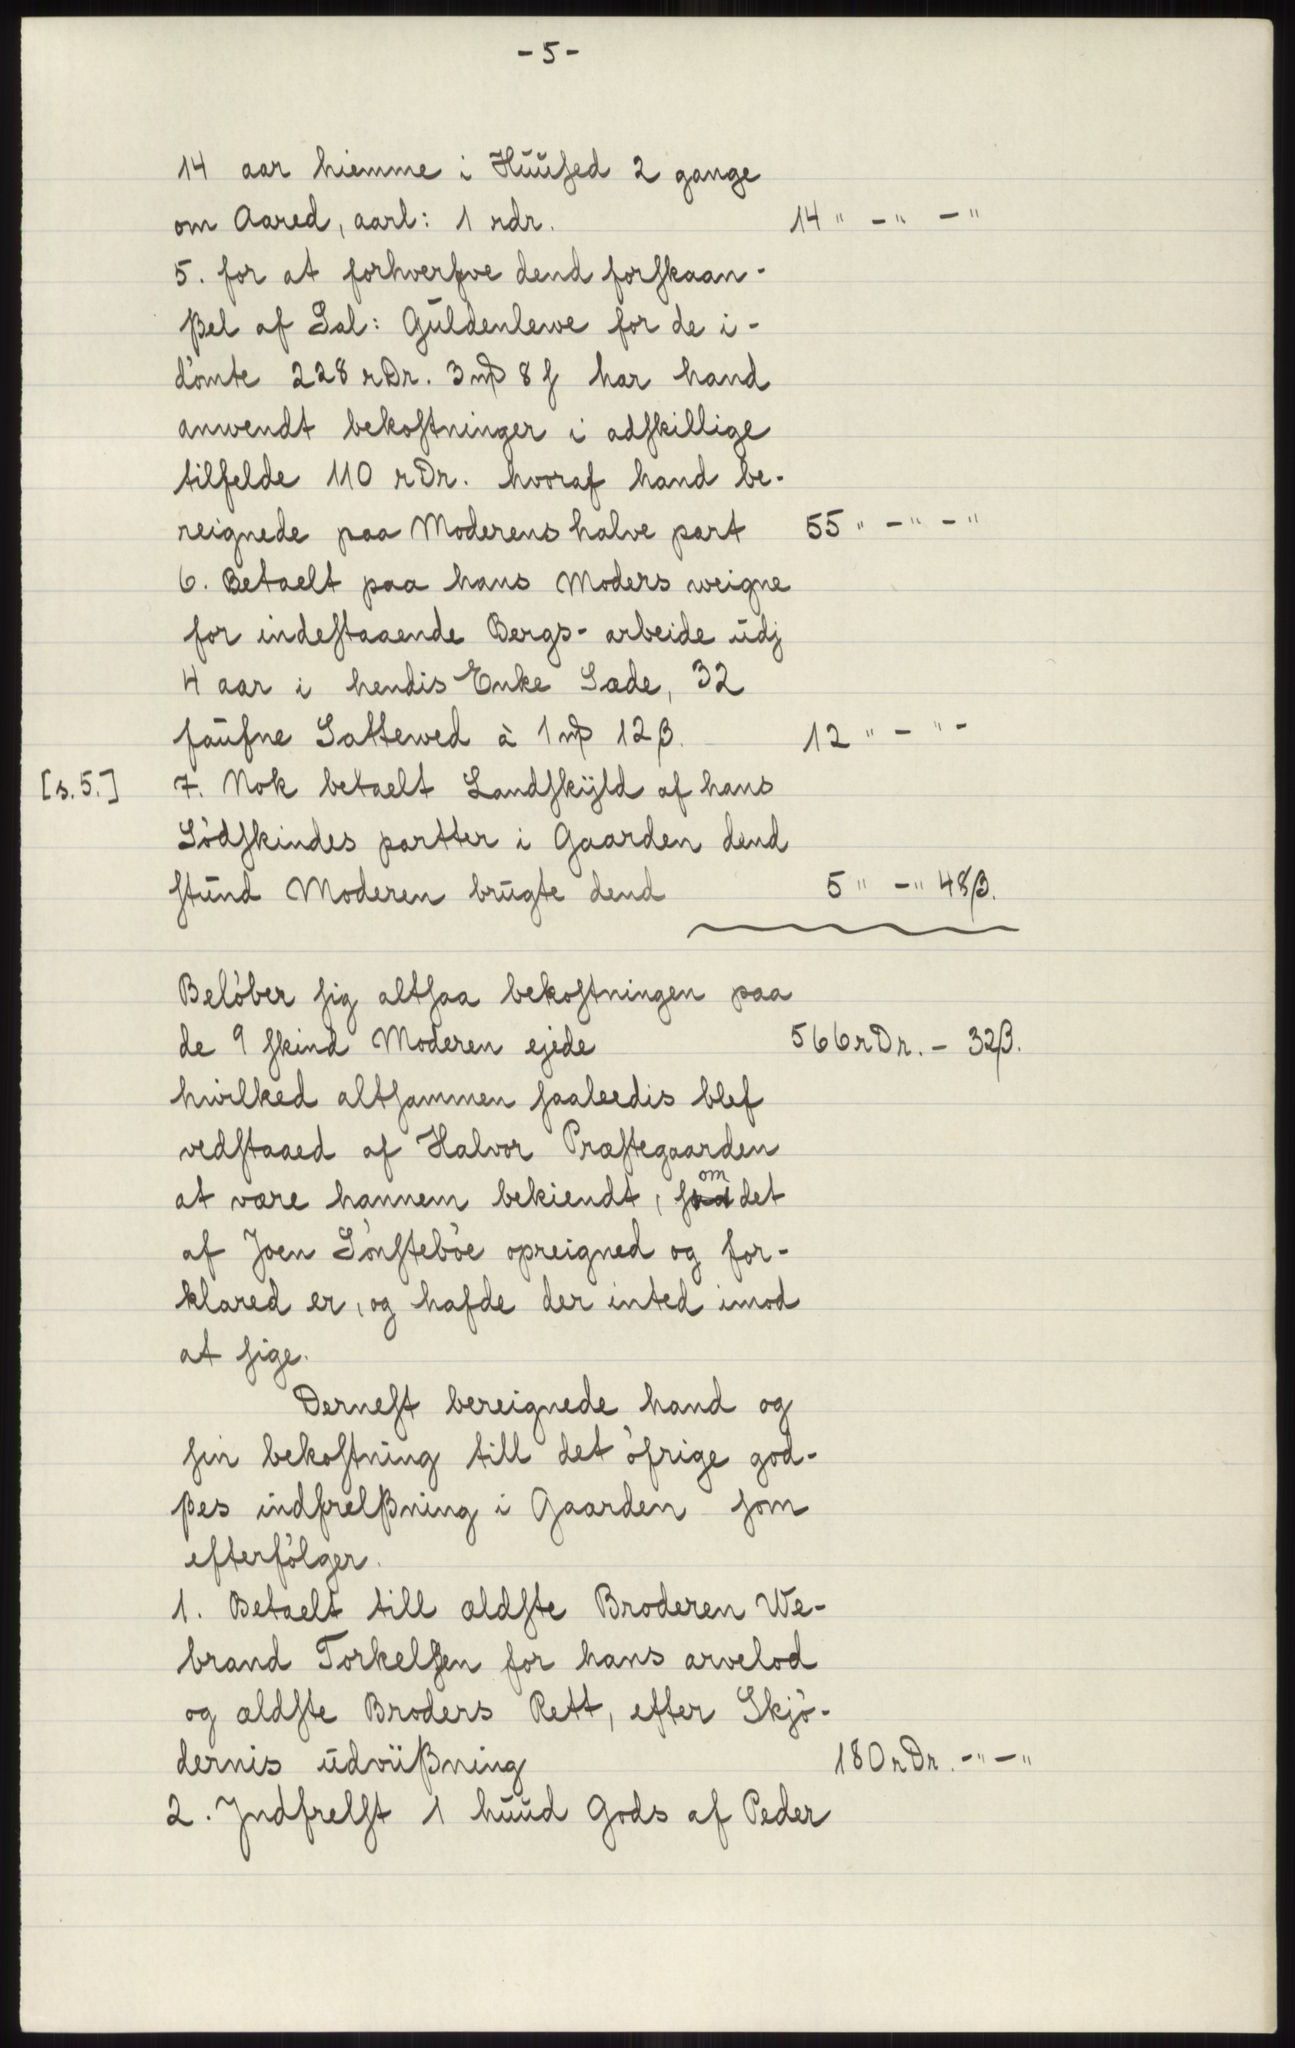 -5-
14 aar hiemme i Huused 2 gange
om Aared, aarl: 1 rdr. 14 " - " - "
5. for at forhverfve dend forskaan-
ßel af Sal: Guldenlewe for de i-
dømte 228 rDr. 3 mß 8 ß har hand
anwendt bekostninger i adskillige
tilfelde 110 rDr. hvoraf hand be-
reignede paa Moderens halve part 55 " - " - "
6. Betaelt paa hans Moders weigne
for indestaaende Bergs-arbeide udj
4 aar i hendis Enke Sæde, 32
faufne Sættewed à 1 mß 12 β. 12 " - " -
[s. 5.] 7. Nok betaelt Landskÿld af hans
Sødskindes partter i Gaarden dend
stund Moderen brugte dend 5 " - " 48 β.
Beløber sig altsaa bekostningen paa
de 9 skind Moderen ejede 566 rDr. - 32 β.
hwilked altsammen saaleedis blef
vedstaaed af Halvor Præstegaarden
at være hannem bekiendt, som det
af Joen Sønstebøe opreigned og for-
klared er, og hafde der inted imod
at sige.
Dernest bereignede hand og
sin bekostning till det øfrige god-
ßes indfrelßning i Gaarden som
efterfølger.
1. Betaelt till ældste Broderen We-
brand Torkelsen for hans arvelod
og ældste Broders Rett, efter Skjø-
dernis udviißning 180 rDr. - " - "
2. Jndfrelst 1 huud Gods af Peder